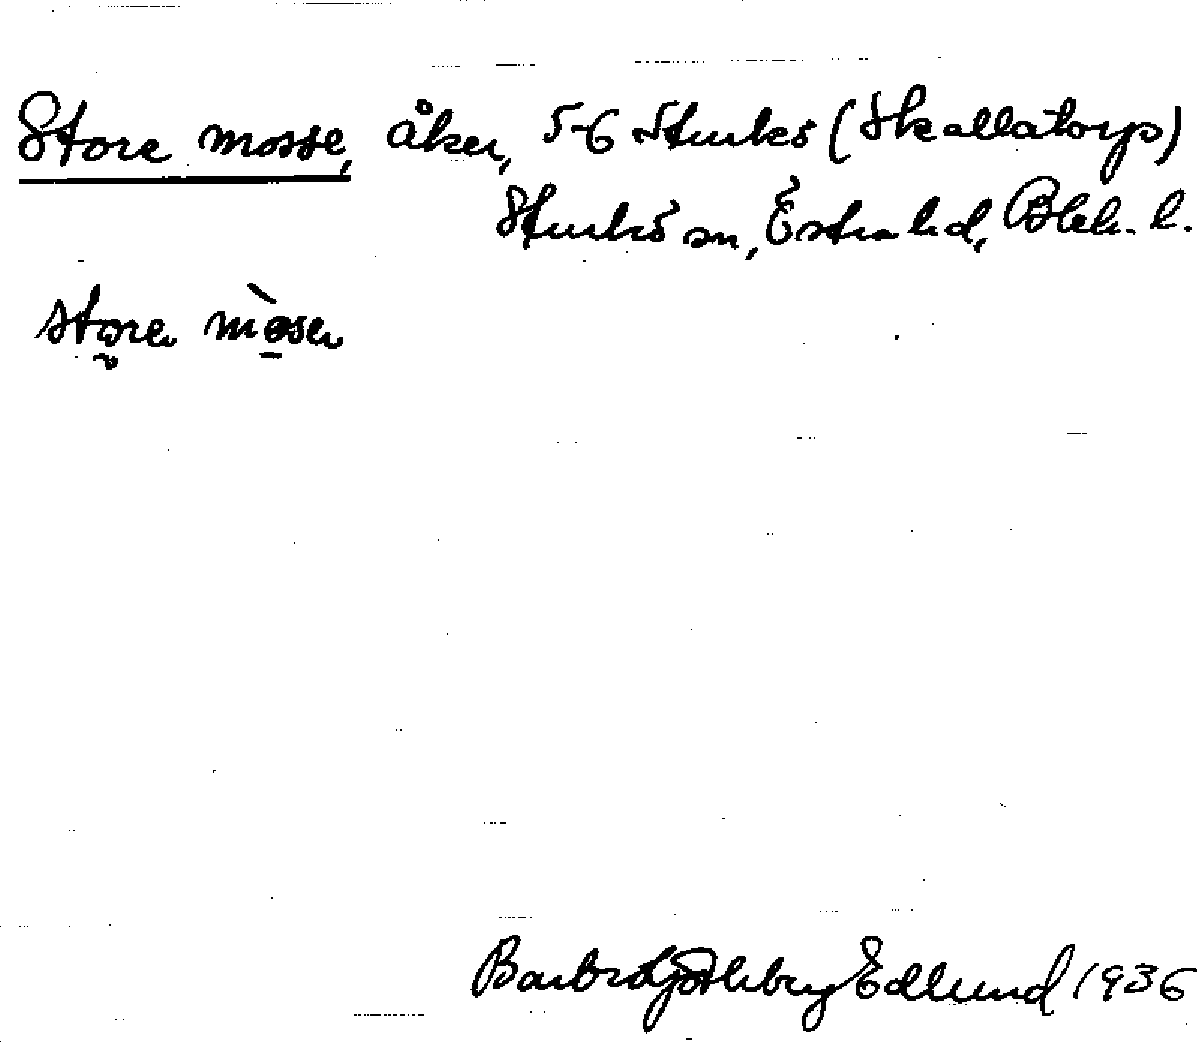 Store mosse, åker, 5-6 Sturkö (Skallatorp)
Sturkö sn, Östra hd, Blek. l.
store mòse
Barbro Edlund 1936